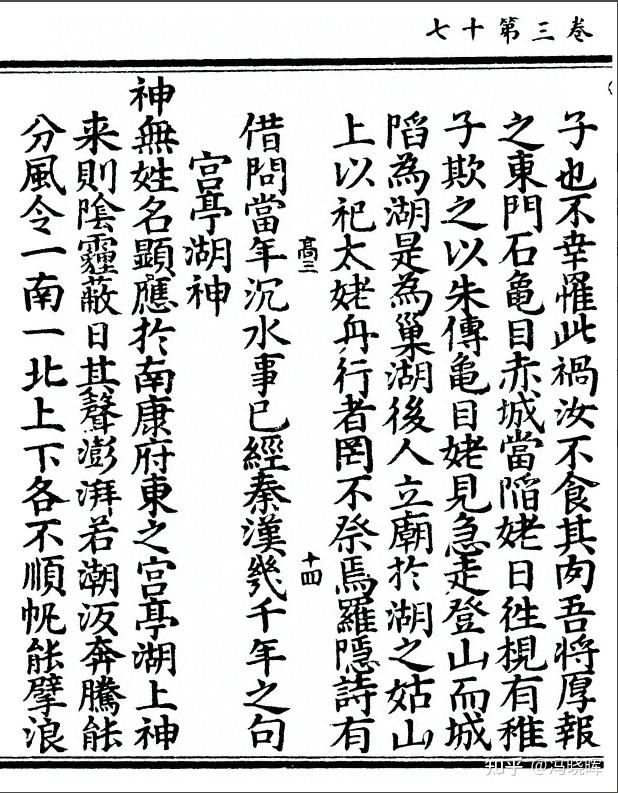 七十第三卷
子也不幸罹此禍汝不食其肉吾将厚報
之東門石亀目赤城當陷姥日徃梘有稚
子欺之以朱傳亀目姥見急走登山而城
陷為湖是為巢湖後人立廟於湖之姑山
上以祀太姥舟行者罔不祭焉羅隱詩有
高三
十四
借問當年沉水事已經秦漢幾千年之句
宫亭湖神
神無姓名顯應於南康府東之宫亭湖上神
来則陰霾蔽日其聲澎湃若潮汳奔騰能
分風令一南一北上下各不順帆能擘浪
知乎 @冯晓晖